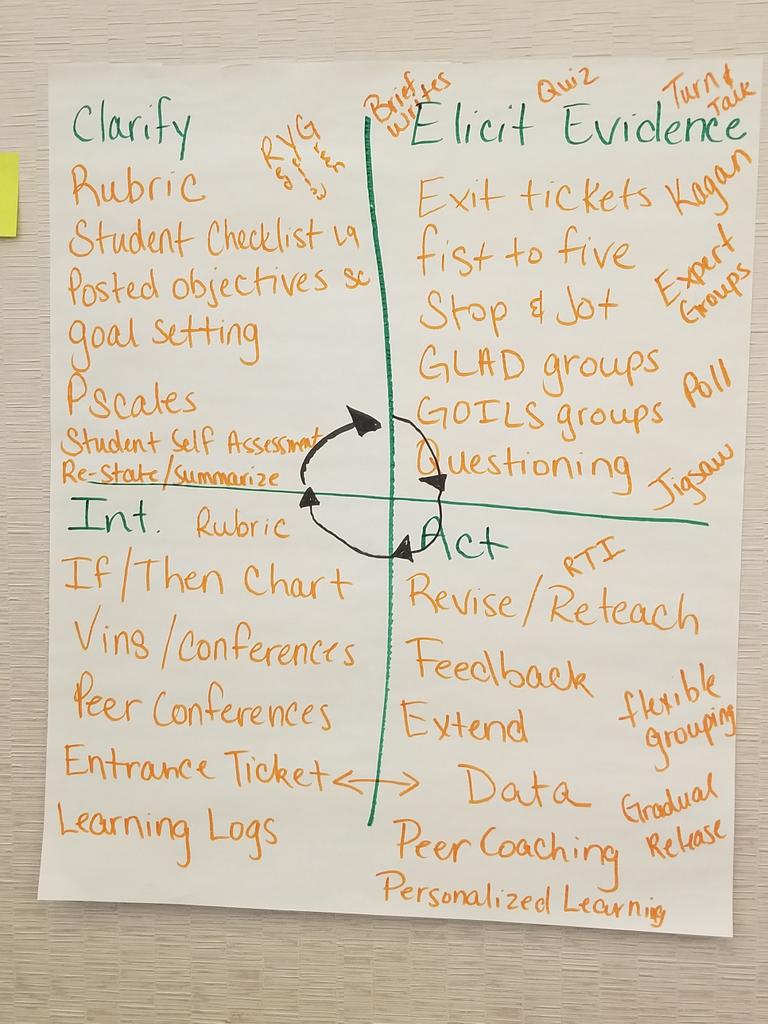 Clarify
RYG
Rubric
Student Checklist
Posted objectives
goal setting
Pscales
Student Self Assessment
Re-state/summarize
Brief Writes
Quiz
Turn & Talk
Elicit Evidence
Exit tickets
Kagan
fist to five
Expert Groups
Stop & Jot
GLAD groups
Poll
GOILS groups
Questioning
Jigsaw
Int.
Rubric
If/Then Chart
Vins/conferences
Peer Conferences
Entrance Ticket
Learning Logs
Act
RTI
Revise/Reteach
Feedback
flexible grouping
Extend
Data
Gradual Release
Peer Coaching
Personalized Learning